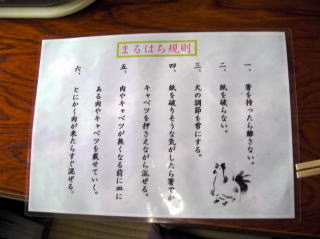 まるはち規則
一、箸を持ったら離さない。
二、紙を破らない。
三、火の調節を常にする。
四、紙を破りそうな気がしたら箸でか
キャベツを押さえながら混ぜる。
五、肉やキャベツが無くなる前に皿に
ある肉やキャベツを載せていく。
六、とにかく肉が来たらすぐ混ぜる。